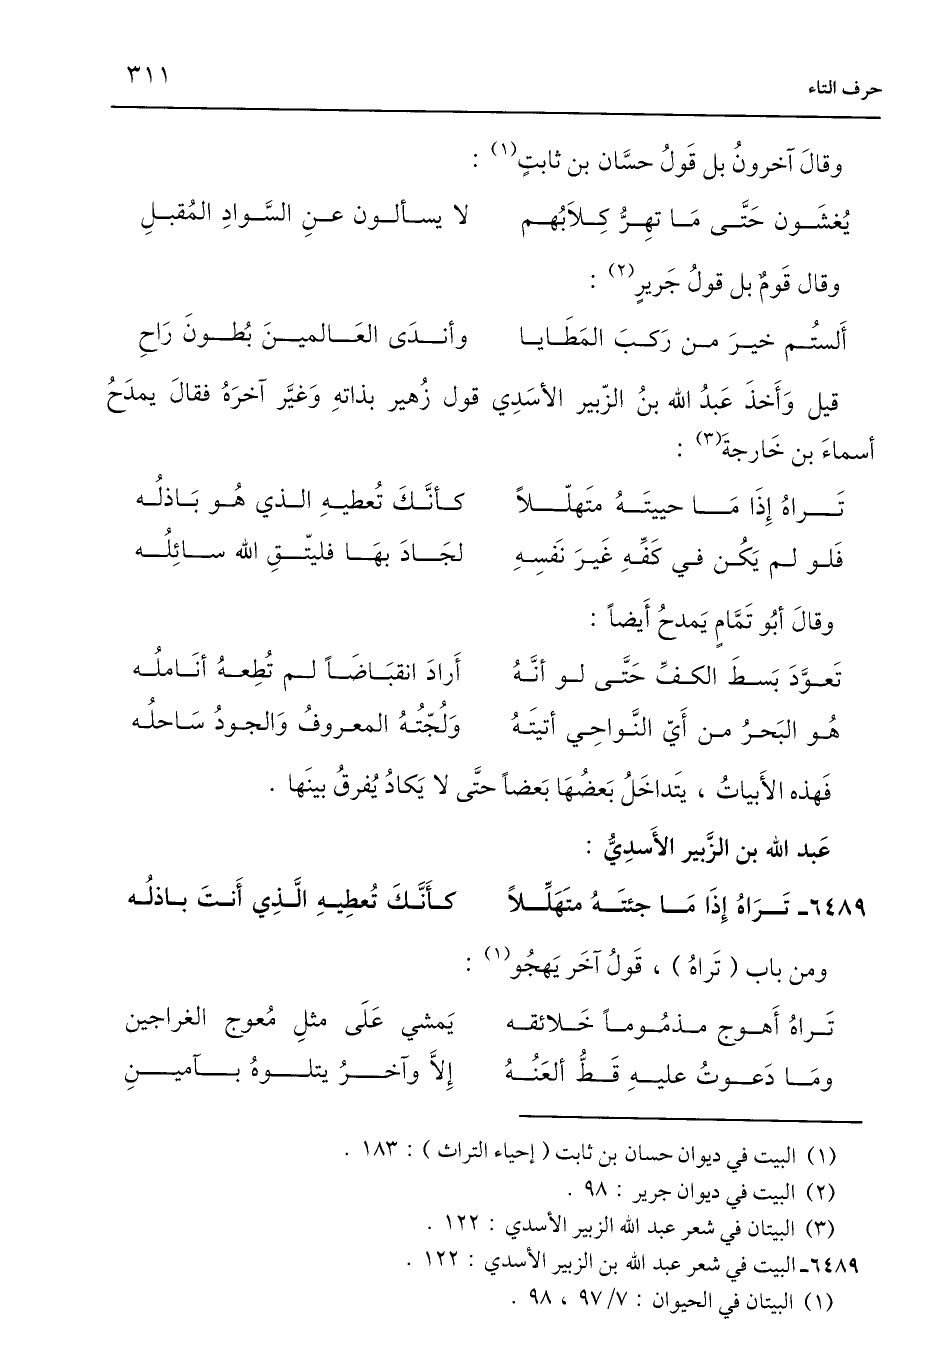 حرف التاء ٣١١
وقالَ آخرونُ بل قَولُ حسَّان بن ثابتٍ(١) :
يُغشَون حَتَّى مَا تهِرُّ كِلاَبُهم لا يسألون عنِ السَّوادِ المُقبلِ
وقال قَومٌ بل قولُ جَريرٍ(٢) :
ألستُم خيرَ من رَكبَ المَطَايا وأندَى العَالمينَ بُطونَ رَاحِ
قيل وَأَخذَ عَبدُ الله بنُ الزّبير الأسَدِي قول زُهير بذاتهِ وَغيَّر آخرَهُ فقالَ يمدَحُ
أسماءَ بن خَارجةَ(٣) :
تَراهُ إِذَا مَا حييتَهُ متهلّلاً كأنَّكَ تُعطيهِ الذي هُو بَاذلُه
فَلو لم يَكُن في كَفِّهِ غَيرَ نَفسِهِ لجَادَ بهَا فليتّقِ الله سائِلُه
وقالَ أبُو تَمَّامٍ يَمدحُ أَيضاً :
تَعوَّدَ بَسطَ الكفِّ حَتَّى لو أنَّهُ أَرادَ انقبَاضَاً لم تُطِعهُ أنَاملُه
هُو البَحرُ من أَيّ النَّواحِي أتيتَهُ وَلُجّتُهُ المعروفُ وَالجودُ سَاحلُه
فَهذه الأَبياتُ ، يتَداخَلُ بَعضُهَا بَعضاً حتَّى لا يَكادُ يُفرقُ بينَها .
عَبد الله بن الزَّبير الأَسديُّ :
٦٤٨٩ـ تَرَاهُ إِذَا مَا جئتَهُ متَهَلِّلاً كأَنَّكَ تُعطيهِ الَّذِي أَنتَ باذلُه
ومن باب ( تَراهُ ) ، قَولُ آخَر يَهجُو(١) :
تَراهُ أَهوج مذمُوماً خَلائقه يَمشي عَلَى مثلِ مُعوج الغراجين
ومَا دَعوتُ عليهِ قَطُّ ألعَنُهُ إلاَّ وآخرُ يتلوهُ بآمينِ
(١) البيت في ديوان حسان بن ثابت ( إحياء التراث ) : ١٨٣ .
(٢) البيت في ديوان جرير : ٩٨ .
(٣) البيتان في شعر عبد الله الزبير الأسدي : ١٢٢ .
٦٤٨٩ـ البيت في شعر عبد الله بن الزبير الأسدي : ١٢٢ .
(١) البيتان في الحيوان : ٩٧/٧ ، ٩٨ .